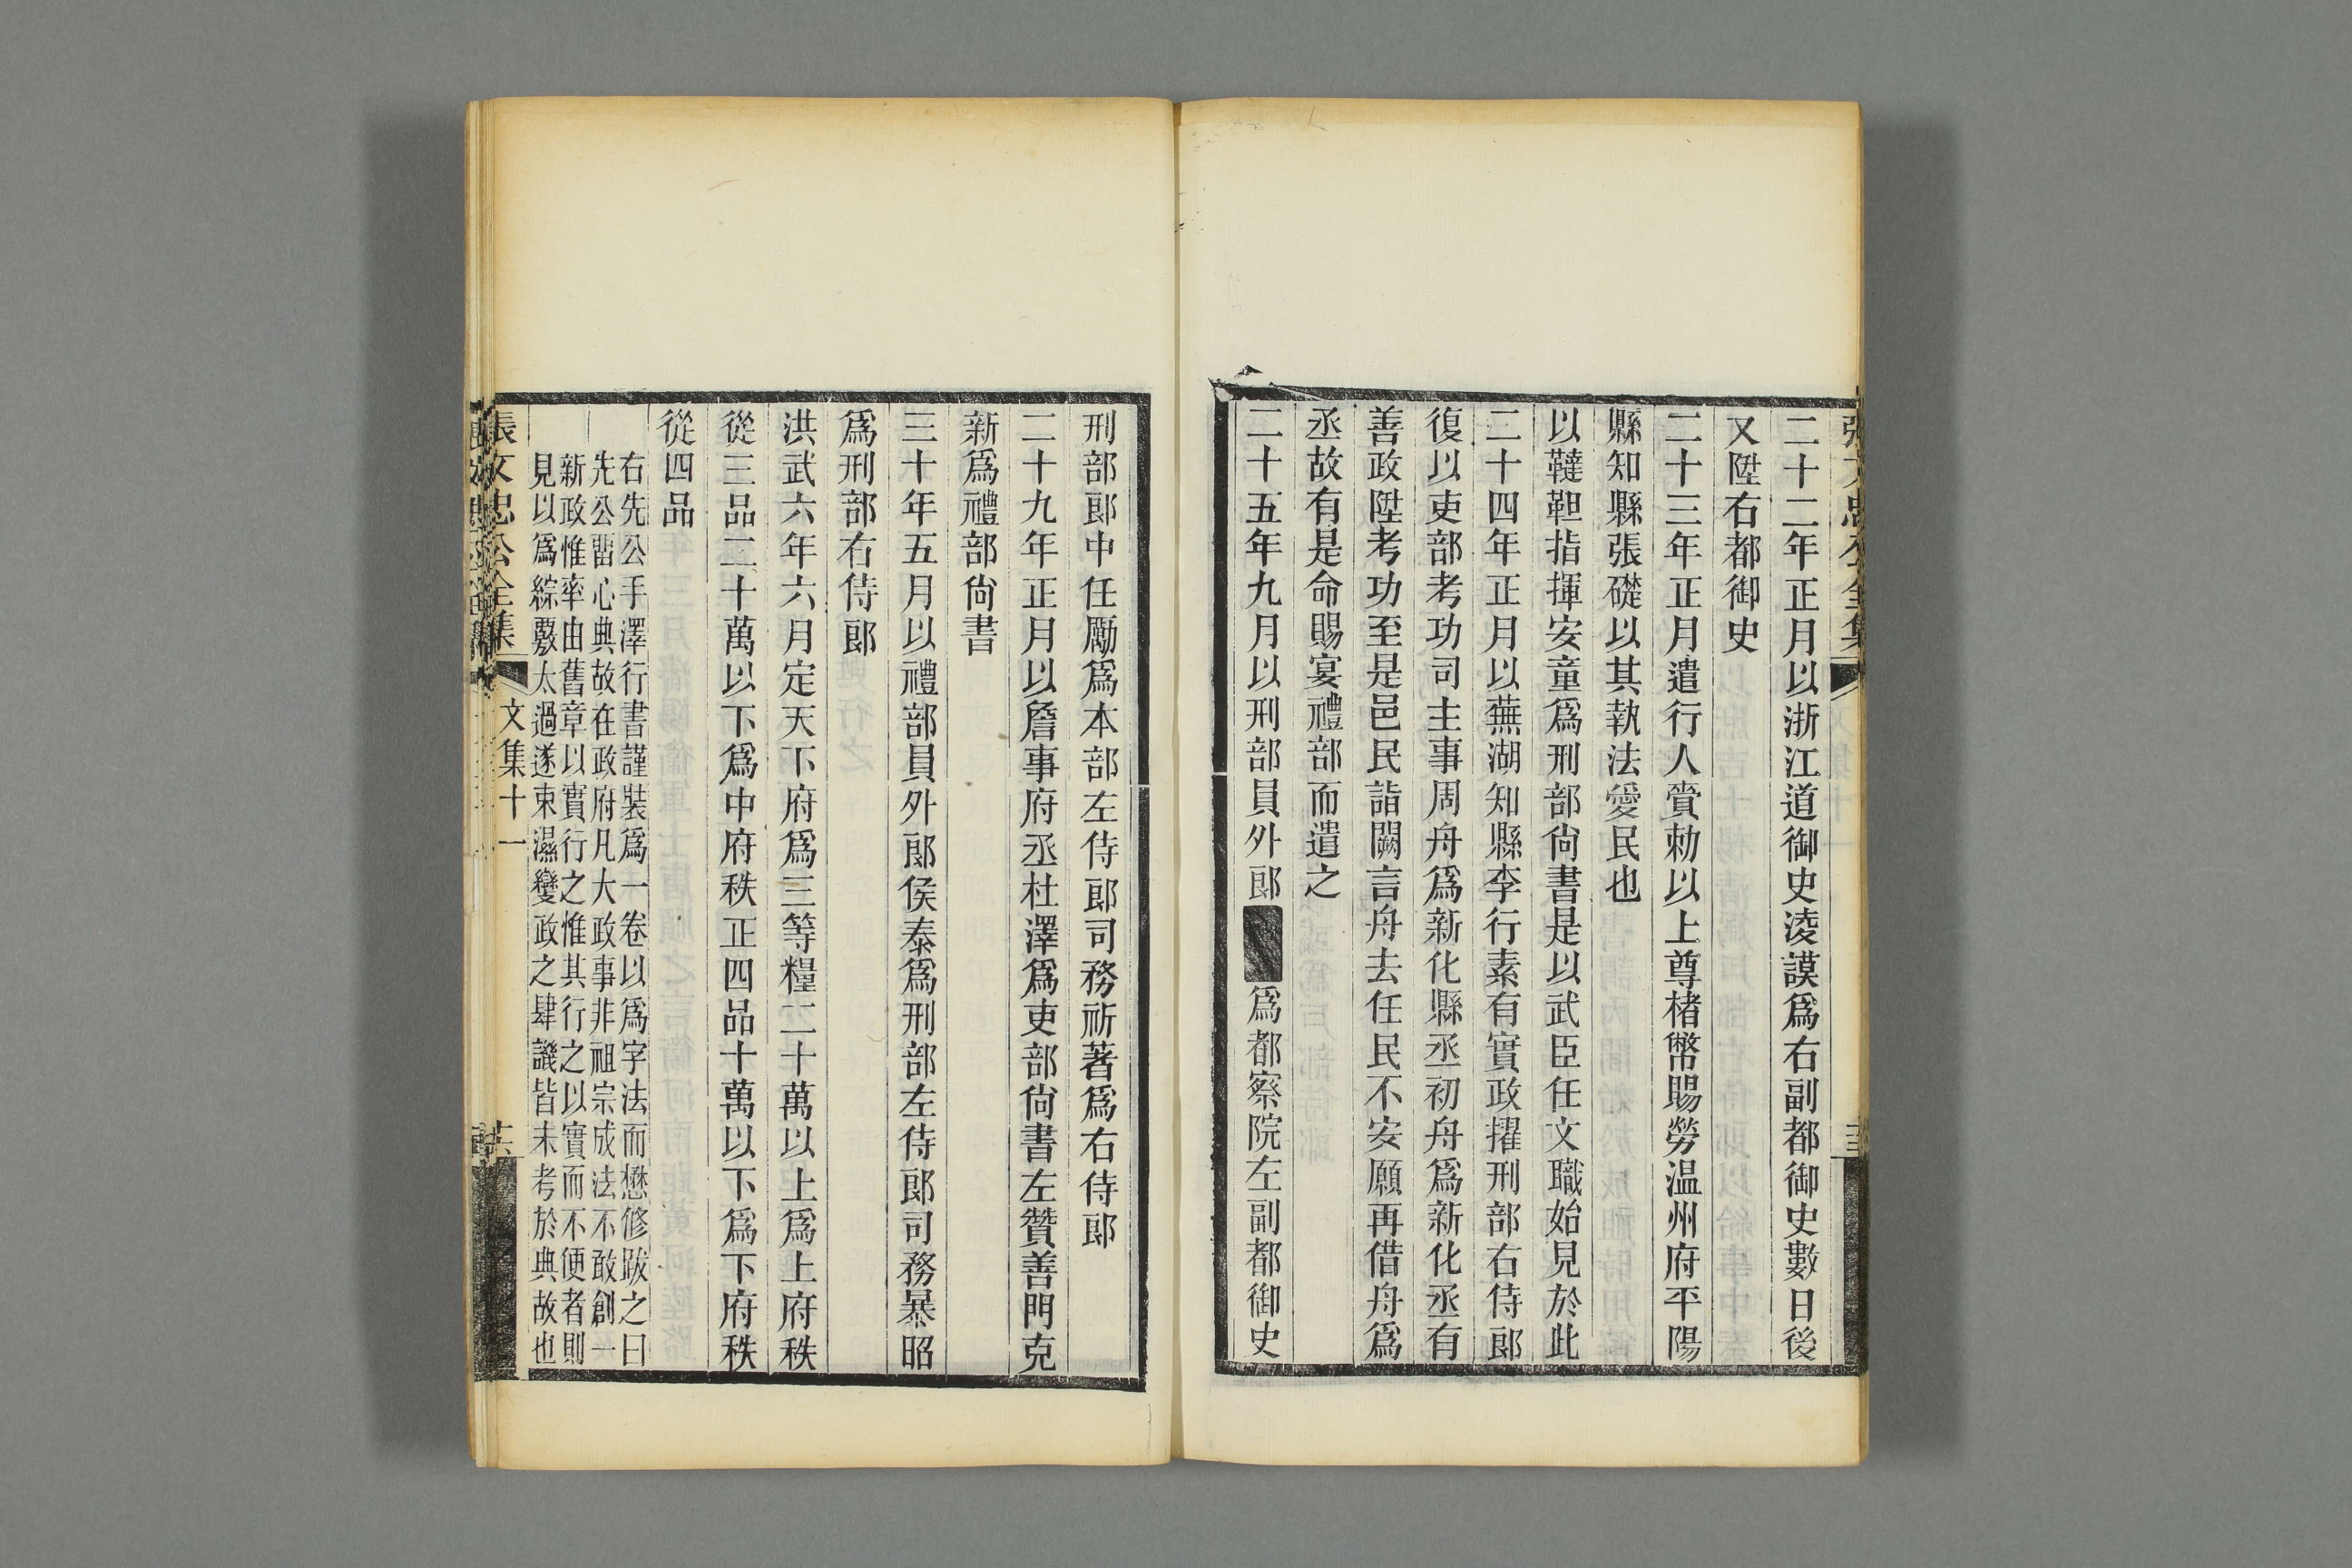 二十二年正月以浙江道御史凌謨爲右副都御史數日後
又陞右都御史
二十三年正月遣行人賫勅以上尊楮幣賜勞温州府平陽
縣知縣張礎以其執法愛民也
以韃靼指揮安童爲刑部尙書是以武臣任文職始見於此
二十四年正月以蕪湖知縣李行素有實政擢刑部右侍郎
復以吏部考功司主事周舟爲新化縣丞初舟爲新化丞有
善政陞考功至是邑民詣闕言舟去任民不安願再借舟爲
丞故有是命賜宴禮部而遣之
二十五年九月以刑部員外郎爲都察院左副都御史
刑部郎中任勵爲本部左侍郎司務祈著爲右侍郎
二十九年正月以詹事府丞杜澤爲吏部尙書左贊善門克
新爲禮部尙書
三十年五月以禮部員外郎侯泰爲刑部左侍郎司務暴昭
爲刑部右侍郎
洪武六年六月定天下府爲三等糧二十萬以上爲上府秩
從三品二十萬以下爲中府秩正四品十萬以下爲下府秩
從四品
右先公手澤行書謹裝爲一卷以爲字法而懋修跋之曰
先公畱心典故在政府凡大政事非祖宗成法不敢創一
新政惟率由舊章以實行之惟其行之以實而不便者則
見以爲綜覈太過遂束濕變政之肆譏皆未考於典故也
張文忠公全集 文集十一